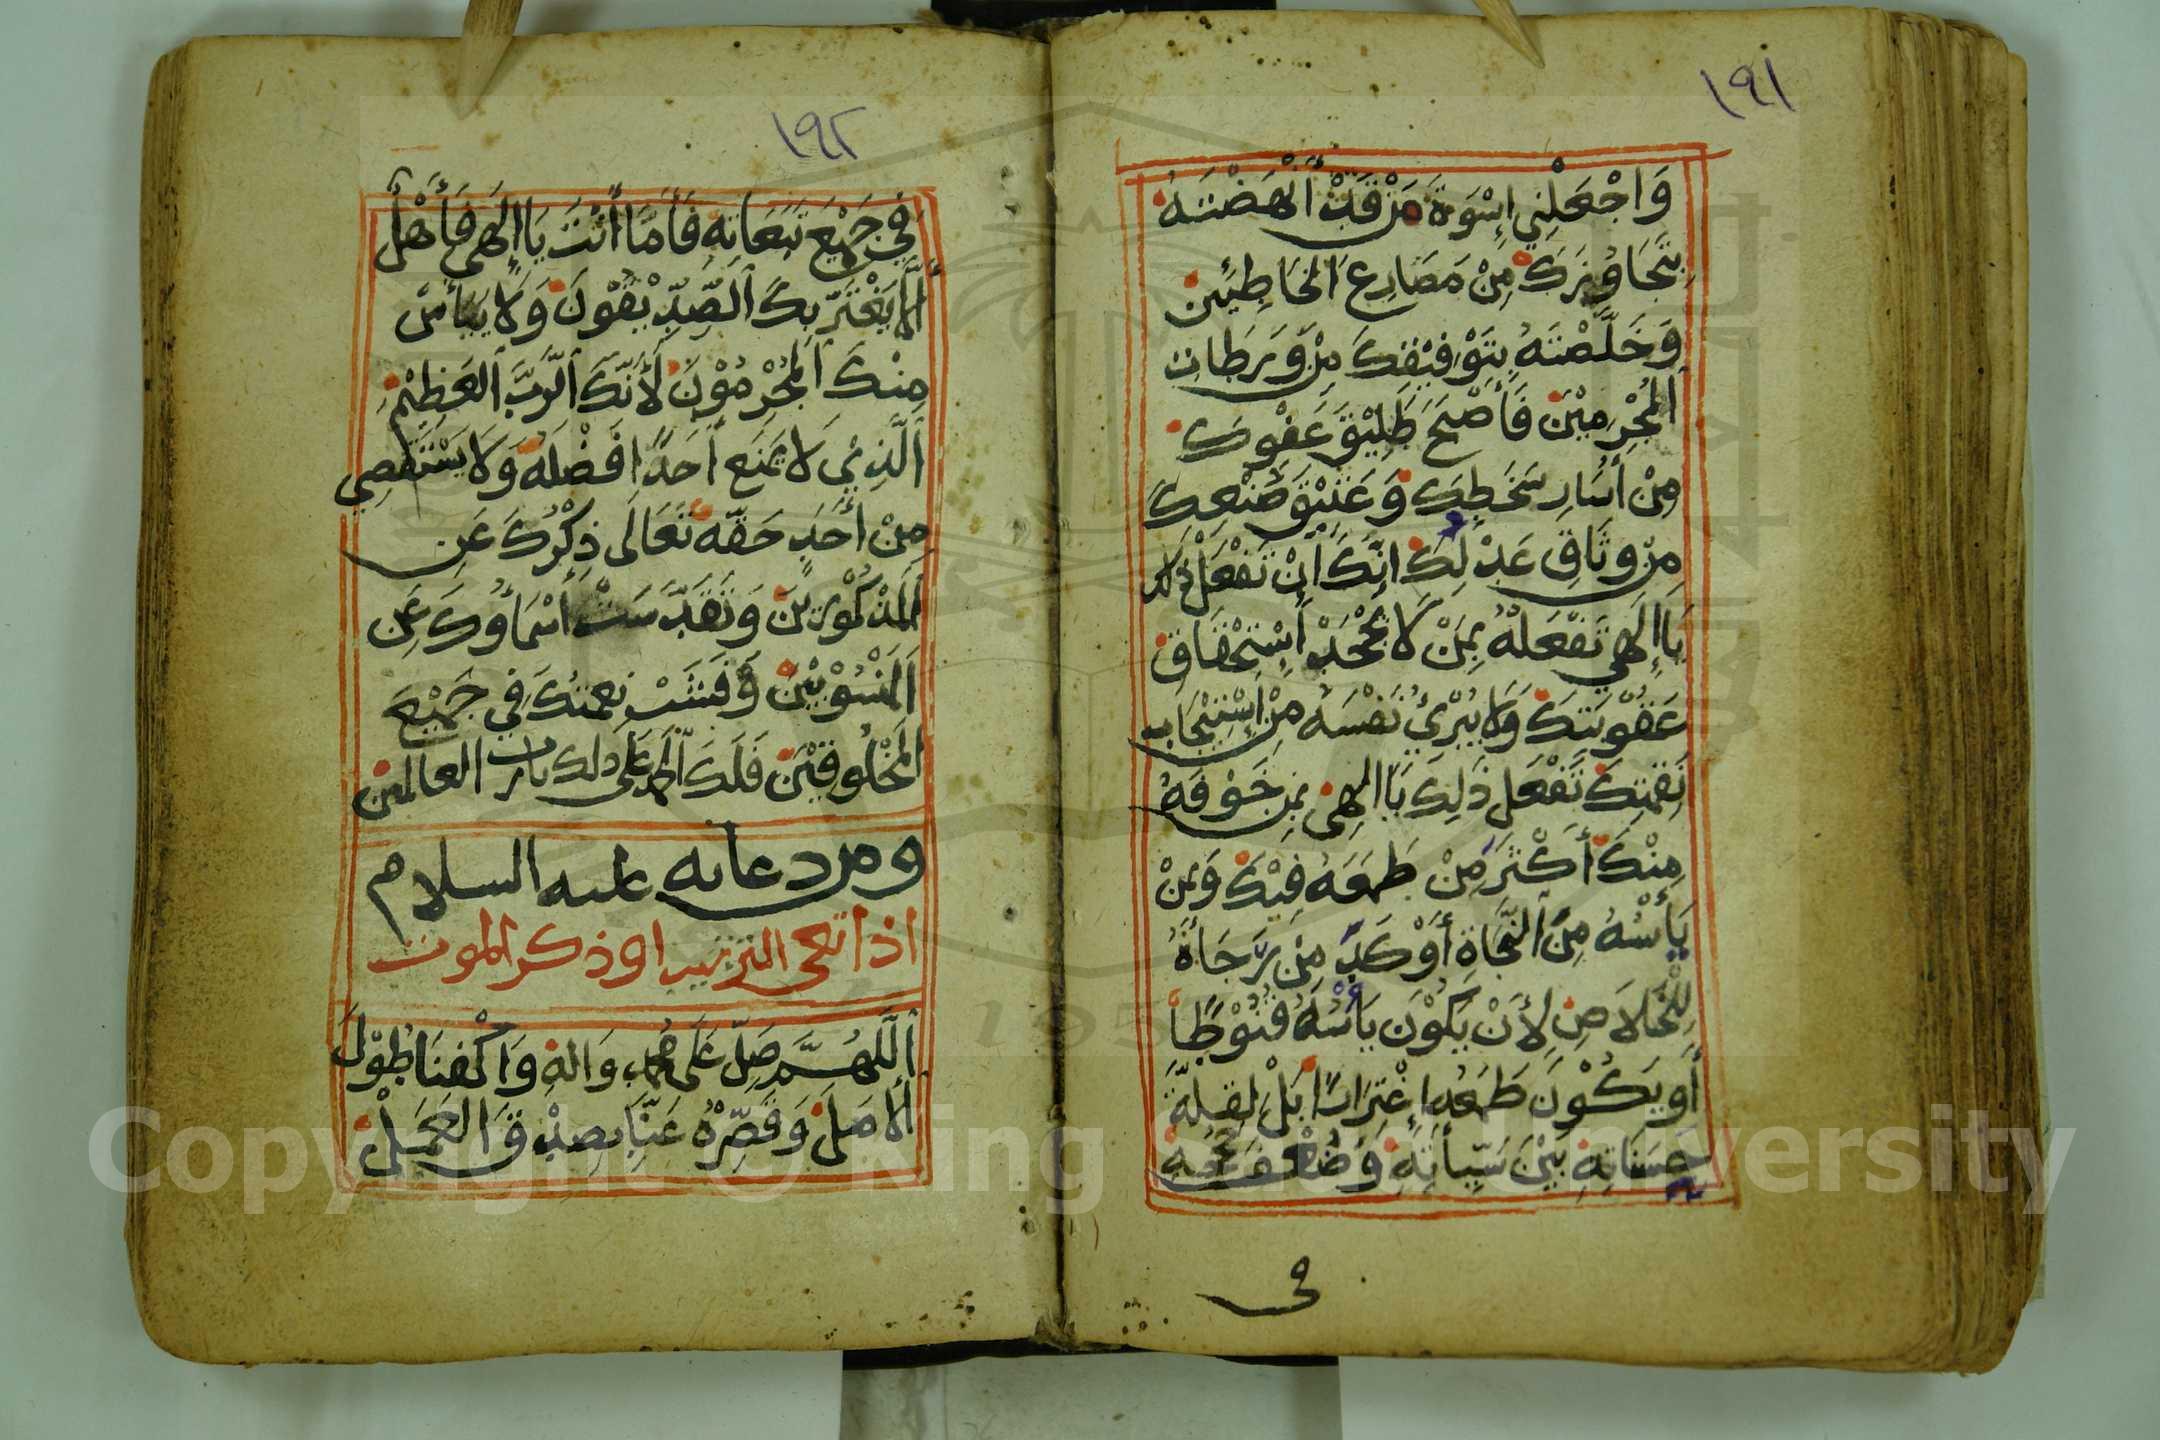 ١٩١
وَاجْعَلْنِي إِسْوَةَ مَنْ قَدْ أَنْهَضْتَهُ
بِتَجَاوُزِكَ مِنْ مَصَارِعِ الخَاطِئِينَ
وَخَلَّصْتَهُ بِتَوْفِيْقِكَ مِنْ وَرَطَاتِ
المُجْرِمِيْنَ فَأَصْبَحَ طَلِيْقَ عَفْوِكَ
مِنْ أَسَارِ سَخَطِكَ وَعَتِيْقَ صُنْعِكَ
مِنْ وَثَاقِ عَدْلِكَ إِنَّكَ أَنْ تَفْعَلْ ذَلِكَ
يَا إِلَهِي تَفْعَلْهُ بِمَنْ لَا يَجْحَدُ إِسْتِحْقَاقَ
عَقُوْبَتِكَ وَلَا يُبْرِئُ نَفْسَهُ مِنْ إِسْتِيْجَابِ
نَقْمَتِكَ تَفْعَل ذَلِكَ يَا الهِي بِمَنْ خَوْفُهُ
مِنْكَ أَكْثَرَ مِنْ طَمَعِهِ فِيْكَ وَبِمَنْ
يَأْسُهُ مِنَ النَّجَاةِ أَوْكَدَ مِنْ رَجَائِهِ
لِلْخَلَاصِ لِأَنْ يَكُوْنَ يَأْسُهُ قُنُوْطًا
أَو يَكُوْنَ طَمَعُهُ إغْتِرَارًا بَلْ لِقِلَّةِ
حَسَنَاتِهِ بَيْنَ سَيِّأَتِهِ وَضُعْفِ حُجَجِهِ
في
١٩٢
فِي جَمِيْعِ تَبَعَاتِهِ فَأَمَّا أَنْتَ يَا إِلَهِي فَأَهْلٌ
أَلَّا يَغْتَرَّ بِكَ الصِّدِّيْقُوْنَ وَلَا يَيْأَسَ
مِنْكَ المُجْرِمُوْنَ لأَنَّكَ الرَّبُّ العَظِيْمُ
الَّذِيْ لَا يَمْنَع أَحَدًا فَضْلَهُ وَلَا يَسْتَقْصِي
مِنْ أَحَدٍ حَقَّهُ تَعَالَى ذِكْرُكَ عَنِ
المَذْكُوْرِيْنَ وَتَقَدَّسَتْ أَسْمَاؤُكَ عَنِ
المَنْسُوْبِيْنَ وَفَشَتْ نِعْمَتُكَ فِي جَمِيْعِ
المَخْلُوقِيْنَ فَلَكَ الحَمْد عَلَى ذلك يارب العالمين
ومن دعائه عليه السلام
اذا نعى اليه ميت او ذكر الموت
اَللَّهُمَّ صَلِّ عَلَى مُحمد وَالهِ وَاكْفِنَا طُوْلَ
الأَمَلِ وَقَصِّرْهُ عَنَّا بِصِدْقِ العَمَلِ